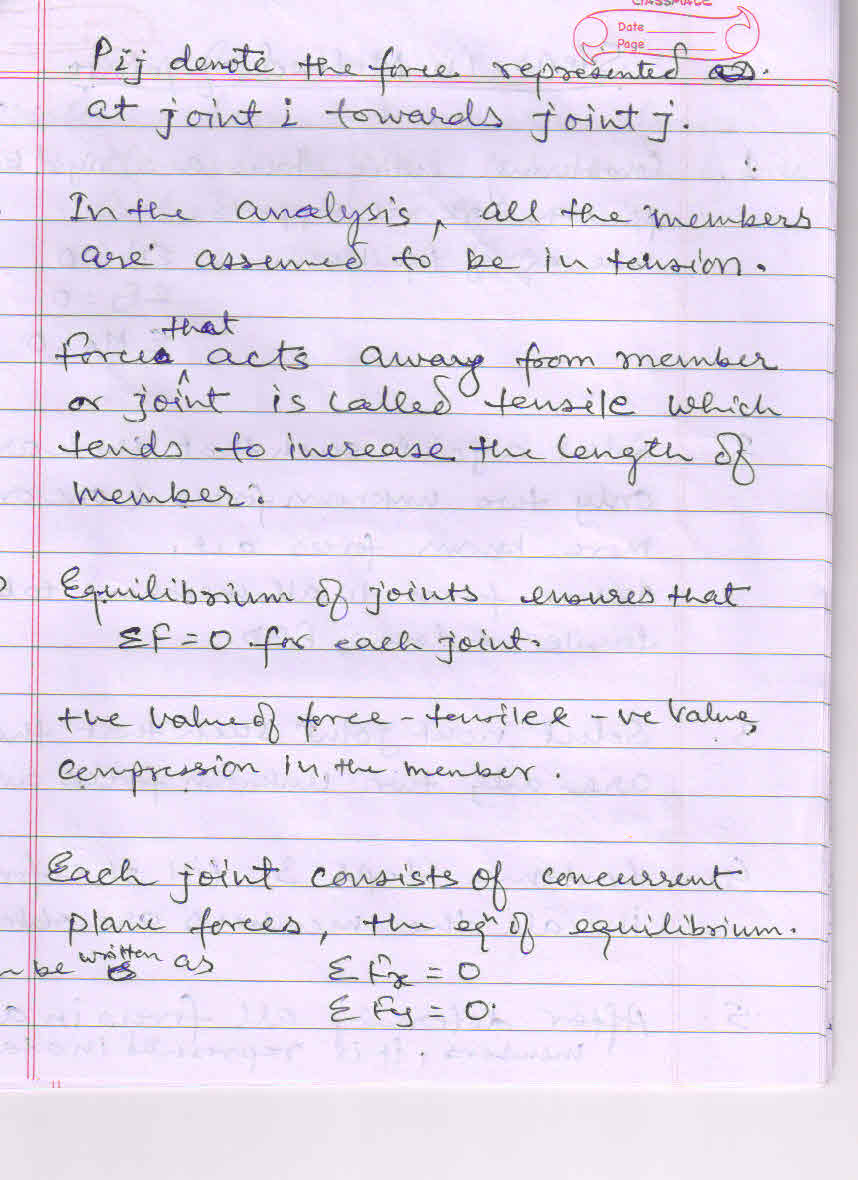 CLASSMATE
Date
Page
Pij denote the force represented
at joint i towards joint j.
In the analysis, all the members
are assumed to be in tension.
that
force acts away from member
or joint is called tensile which
tends to increase the length of
member.
Equilibrium of joints ensures that
ΣF = 0 for each joint.
+ve value of force - tensile & -ve value,
compression in the member.
Each joint consists of concurrent
plane forces, the eqn of equilibrium.
written
be as ΣFx = 0
ΣFy = 0